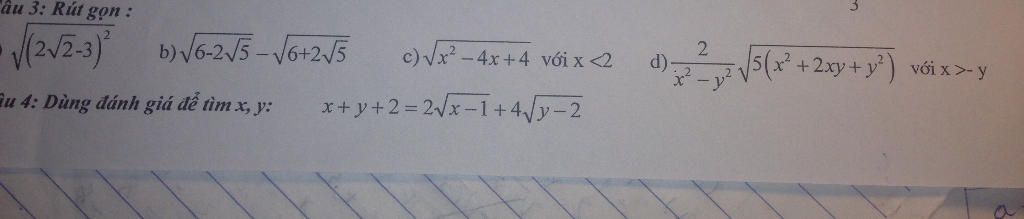 3
âu 3: Rút gọn :
) √(2√2-3)² b) √6-2√5 − √6+2√5 c) √x² − 4x + 4 với x <2 d) 2/(x² − y²) √5(x² + 2xy + y²) với x >- y
âu 4: Dùng đánh giá để tìm x, y: x + y + 2 = 2√x − 1 + 4√y − 2
a